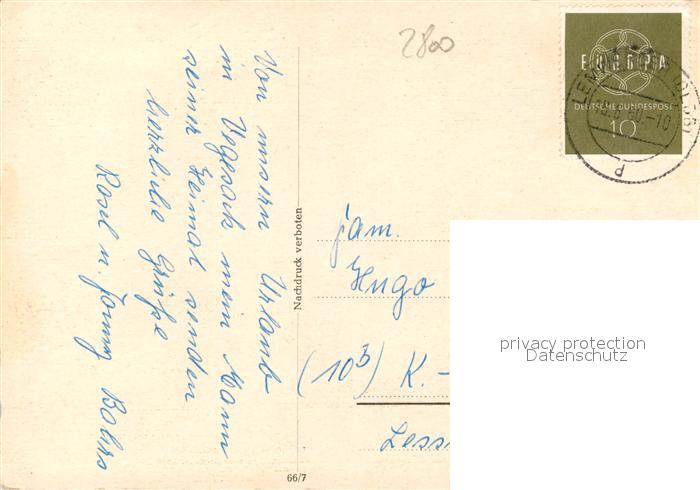 2800
EUROPA
DEUTSCHE BUNDESPOST
10
Von unserm Urlaub
in Vegesack mein Mann
seiner Heimat senden
herzliche Grüße
Rosel u.
Nachdruck verboten
Fam.
Hugo
(10b) K.-
Less
66/7
privacy protection
Datenschutz